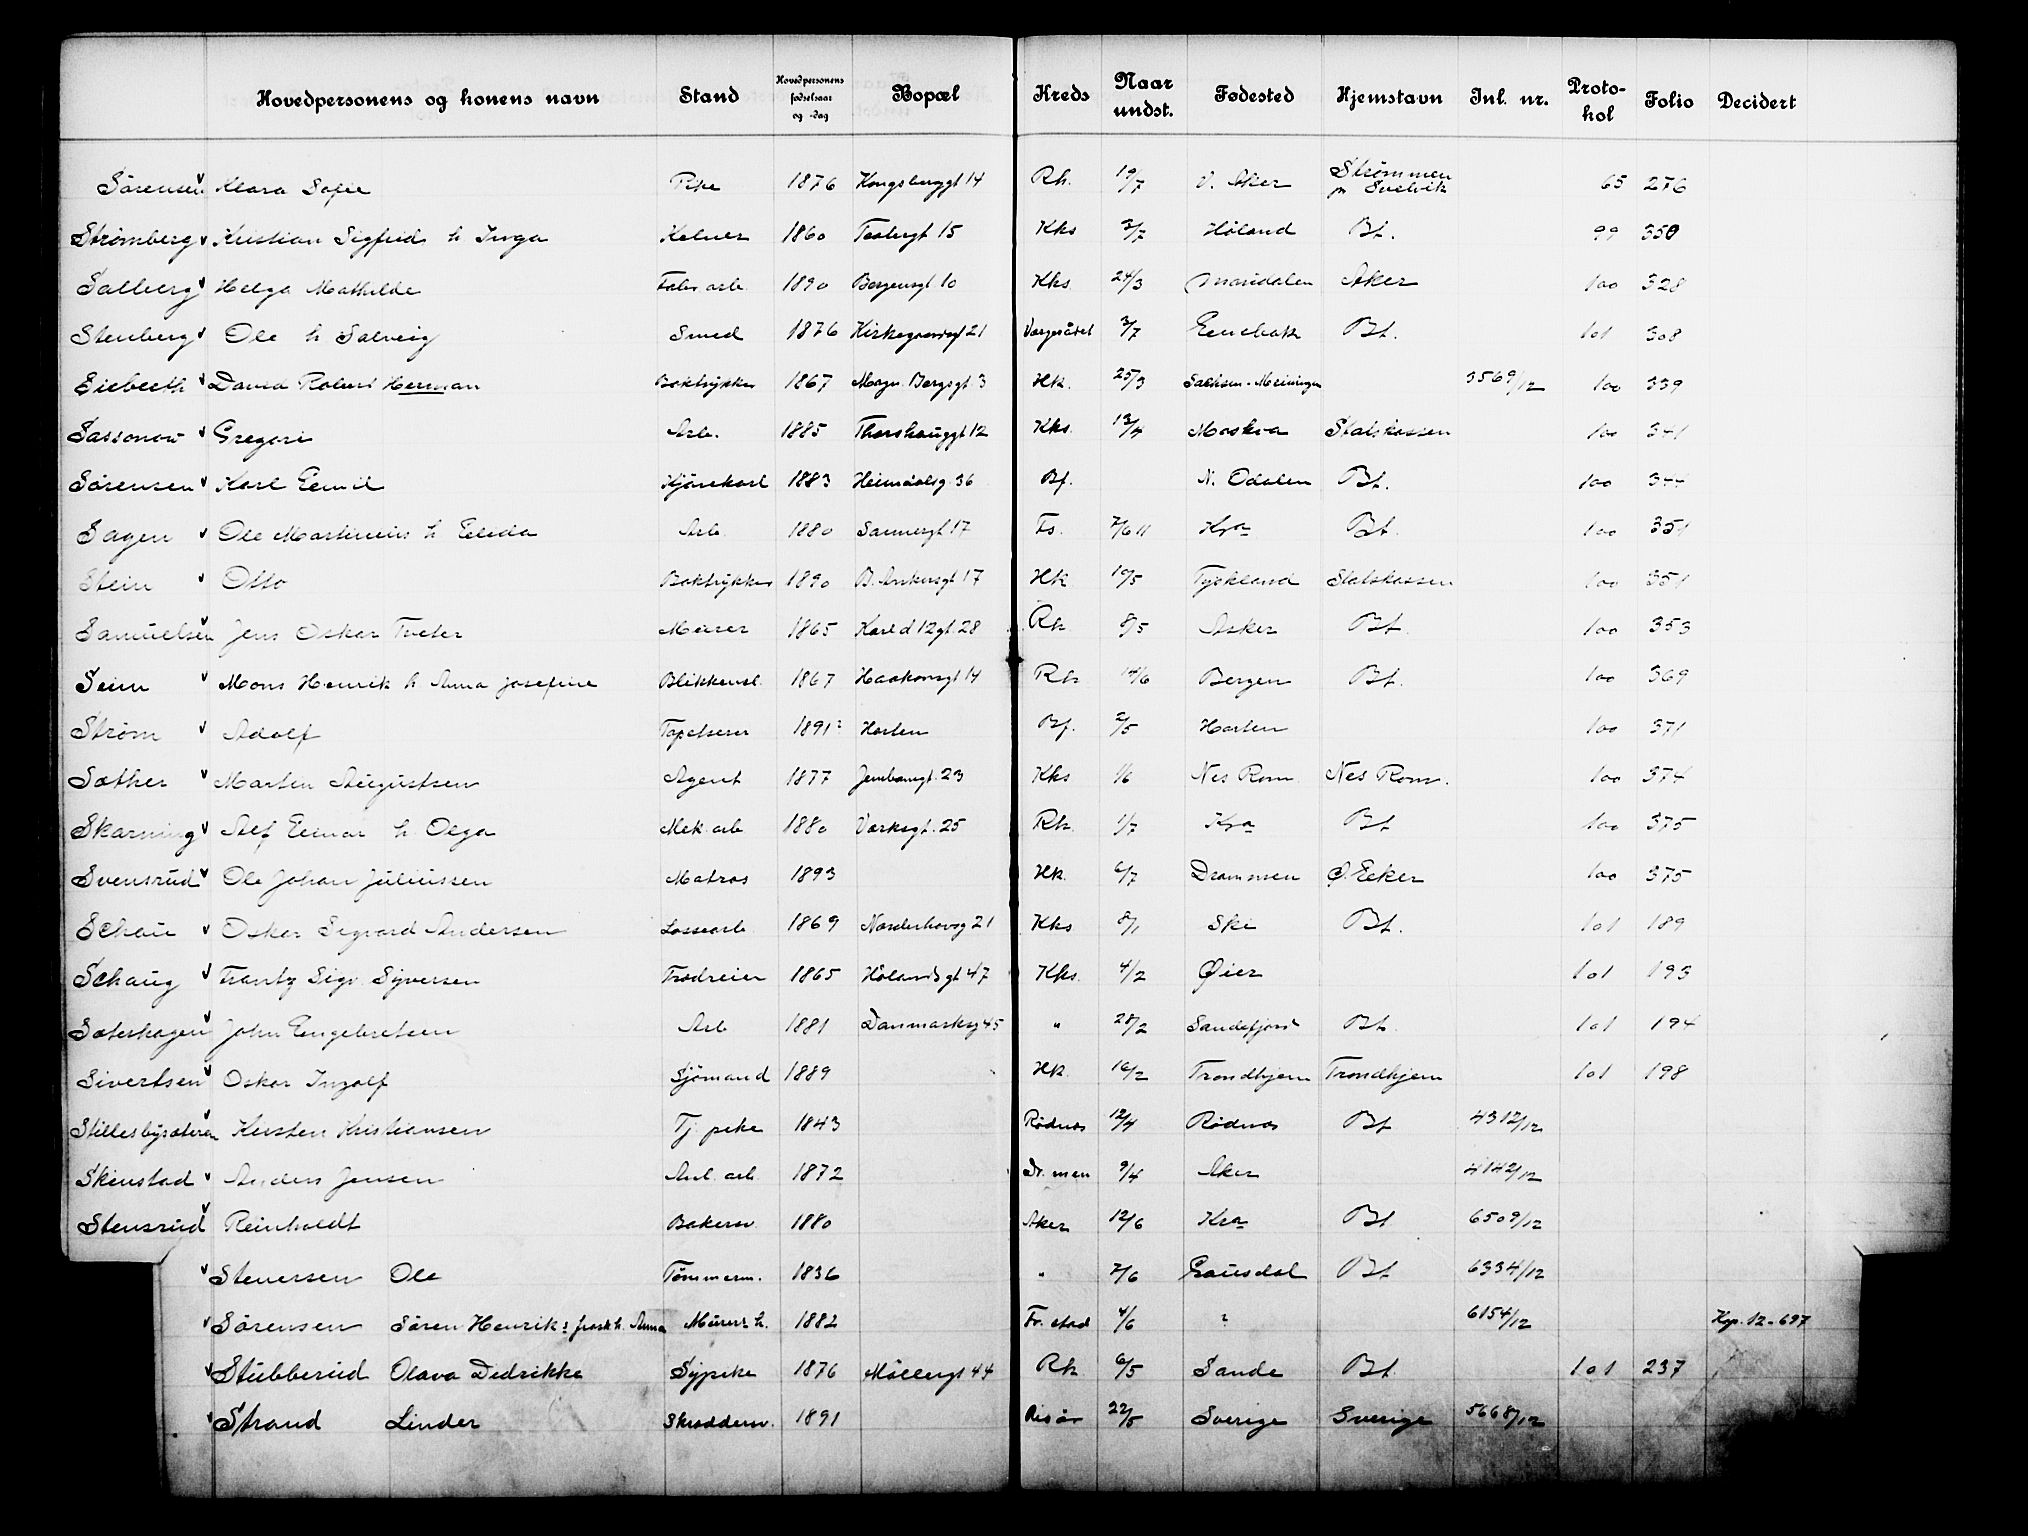 Hovedpersonens og konens navn Stand Hovedpersonens fødselsaar og -dag Bopæl Kreds Naar undst. Fødested Hjemstavn Inl. nr. Protokol Folio Decidert
Sørensen Klara Sofie Pike 1876 Kongsberggt 14 Rk. 19/7 V. Aker Strømmen pr Svelvik 65 276
Strømberg Kristian Sigfrid h Inga Kelner 1860 15 Kks 3/7 Høland Bt. 99 350
Salberg Helga Mathilde Fabr arb. 1890 Bergensgt 10 Kks 24/3 Maridalen Aker 100 328
Stenberg Ole h Solveig Smed 1876 Kirkegaardsgt 21 Vergerådet 3/7 Enebak Bt. 101 308
David Robert Herman Boktrykker 1867 Magn. Bergsgt 3 Hk. 25/3 Sachsen-Meiningen 3569/12 100 339
Sassonow Gregori Arb. 1885 Thorshauggt 12 Kks. 12/4 Moskva Statskassen 100 341
Sørensen Karl Emil Kjørekarl 1883 Heimdalsg. 36 Bf. N. Odalen Bt. 100 344
Sagen Ole Martinius h Elida Arb. 1880 Sannergt 17 Fs. 7/6 11 Kra Bt. 100 351
Stein Otto Boktrykker 1890 B. Ankersgt 17 Hk 10/5 Tyskland Statskassen 100 351
Samuelsen Jens Oskar Tveter Murer 1865 Karl d 12 gt. 28 Rk 8/5 Asker Bt. 100 353
Seim Mons Henrik h. Anna Josefine Blikkensl. 1867 Haakonsgt 14 Rk 14/6 Bergen Bt. 100 369
Strøm Adolf Tapetserer 1891? Horten Bf. 2/5 Horten 100 371
Sæther Marten Augustsen Agent 1877 Jernbanegt. 23 Kks 1/6 Nes Rom. Nes Rom. 100 374
Skarning Alf Einar h. Olga Mek. arb 1880 Verksgt. 25 Rk. 1/7 Kra Bt 100 375
Svensrud Ole Johan Juliussen Matros 1893 Hk. 6/7 Drammen Ø. Eker 100 375
Schau Oskar Sigvard Andersen Lossearb. 1869 Norderhovsg 21 Kks 8/1 Ski Bt. 101 189
Schaug Frantz Sigv. Syversen Trædreier 1865 Hølandsgt 47 Kks. 4/2 Øier 101 193
Sæterhagen John Engebretsen Arb 1881 Danmarksg 45 " 28/2 Sandefjord Bt. 101 194
Sivertsen Oskar Ingolf Sjømand 1889 Hk. 16/2 Trondhjem Trondhjem 101 198
Stillesbysæteren Kirsten Kristiansen Tj. pike 1843 Rødnes 12/4 Rødnes Bt 4312/12
Skinstad Anders Jensen Anl. arb. 1872 Dr. men 9/4 Aker 4142/12
Stensrud Reinholdt Bakersv. 1880 Aker 12/6 Kra Bt 6509/12
Stenersen Ole Tømmerm. 1836 " 7/6 Gausdal Bt 6334/12
Sørensen Søren Henriks frask h. Anna Murers h. 1882 Fr. stad 4/6 ? 6154/12 Kop. 12-697
Stubberud Olava Didrikke Sypike 1876 Møllergt 44 Rk 6/5 Sande Bt. 101 237
Strand Linder Skræddersv. 1891 Risør 22/5 Sverige Sverige 5668/12